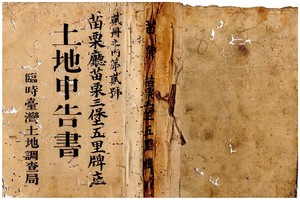 貳冊之內第貳號
苗栗廳苗栗三堡五里牌庄
土地申告書
臨時臺灣土地調查局